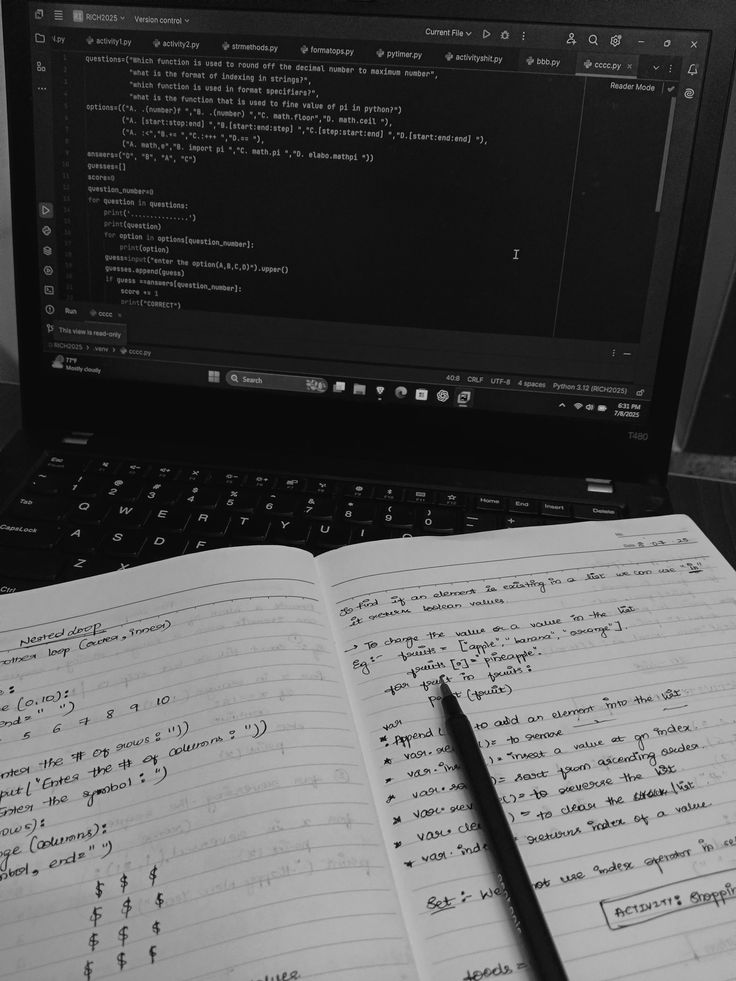 RICH2025 Version control
Current File
.py activity1.py activity2.py strmethods.py formatops.py pytimer.py activityshit.py bbb.py cccc.py
Reader Mode
questions=("Which function is used to round off the decimal number to maximum number",
"what is the format of indexing in strings?",
"which function is used in format specifiers?",
"what is the function that is used to fine value of pi in python?")
options=(("A. .(number)f ","B. .(number) ","C. math.floor","D. math.ceil "),
("A. [start:stop:end] ","B.[start:end:step] ","C.[step:start:end] ","D.[start:end:end] "),
("A. :<","B.+= ","C.:+++ ","D.== "),
("A. math,e","B. import pi ","C. math.pi ","D. elabo.mathpi "))
answers=("D", "B", "A", "C")
guesses=[]
score=0
question_number=0
for question in questions:
print('...............')
print(question)
for option in options[question_number]:
print(option)
guess=input("enter the option(A,B,C,D)").upper()
guesses.append(guess)
if guess ==answers[question_number]:
score += 1
print("CORRECT")
Run cccc
This view is read-only
RICH2025 > .venv > cccc.py
40:8 CRLF UTF-8 4 spaces Python 3.12 (RICH2025)
77°F
Mostly cloudy
Search
6:31 PM
7/8/2025
T480
Esc
Home End Insert Delete
1 2 3 4 5 6 7 8 9 0
Tab Q W E R T Y U I
CapsLock A S D
Z
Ctrl
Nested loop
another loop (outer, inner)
(0,10):
end=" ")
5 6 7 8 9 10
Enter the # of rows : "))
put("Enter the # of columns : "))
Enter the symbol : ")
rows):
(columns):
symbol, end=" ")
$ $ $
$ $ $
$ $ $
$ $ $
8-07-25
To find if an element is existing in a list we can use "in"
it returns boolean values.
→ To change the value or a value in the list
Eg :- fruits = ["apple", "banana", "orange"].
fruits [0] = "pineapple".
for fruit in fruits :
(fruit)
var
* Append ( to add an element into the list
* var. = to remove
* var. = insert a value at gn index.
* var. = sort from ascending order.
* var. () = to reverse the list
* var. ) = to clear the list.
* var. returns index of a value.
Set :- not use index operator in
ACTIVITY: Shopping
foods =